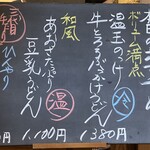 ボリューム満点
温玉のっけ 冷
牛とろぶっかけうどん
1380円
和風
あおさたっぷり 温
豆乳うどん
1,100円
ひんやり